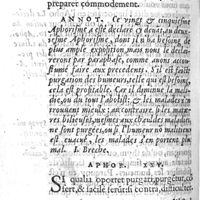 preparer commodement.
ANNOT. Ce vingt & cinquiesme
Aphorisme a esté declaré devant, au deux-
iesme Aphorisme, dont il n'a besoin de
plus ample exposition mais nous le decla-
rerons par paraphrase, comme avons accou-
stumé faire aux precedents. s'il est faict
purgation des humeurs, telle que il faut,
elle est profitable. Car il diminue la mala-
die, ou du tout l'abolist; & les malades n'en
trouvent mieux. Au contraire, les
res bilieuses, mesmes aux malades
ne sont purgées, ou si l'humeur no
est evacué, les malades s'en portent
mal. I. Breche.
APHOR. XXV.
Si qualia oportet purgari, purgetur, co
fert, & facilè ferunt: contrà, difficulter.